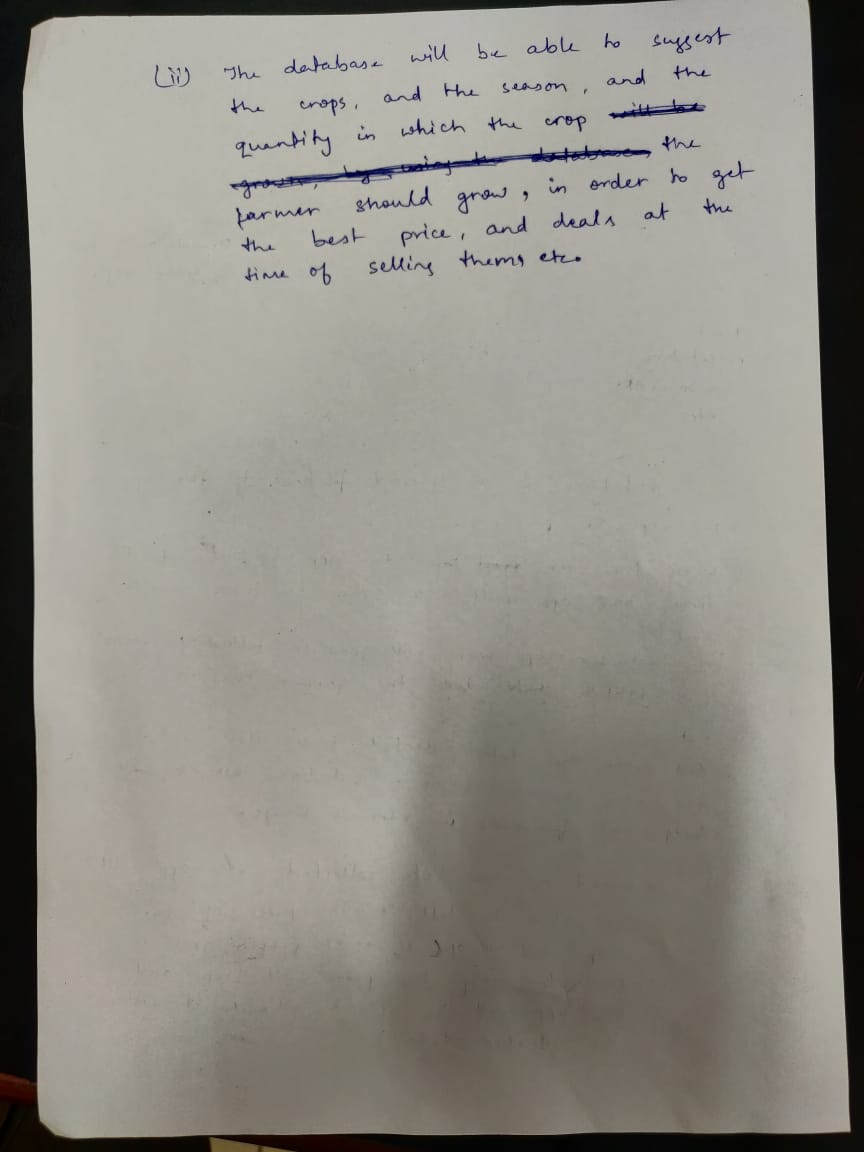 (ii) The database will be able to suggest
the crops, and the season, and the
quantity in which the crop will be
grown, by using the database, the
farmer should grow, in order to get
the best price, and deals at the
time of selling thems etc.